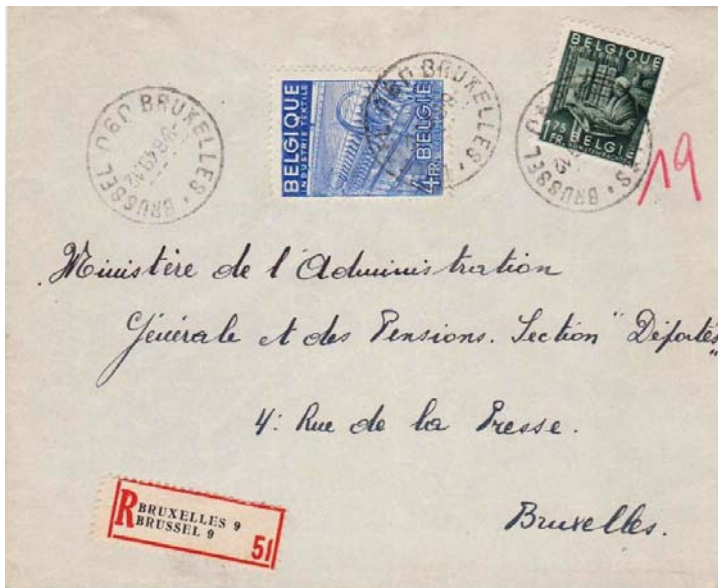 BRUXELLES
BRUSSEL
BELGIQUE
INDUSTRIE TEXTILE
BELGIË
4 FR.
BRUXELLES
BELGIQUE
1.75 FR.
BELGIË
BRUSSEL
19
Ministère de l'Administration
Générale et des Pensions. Section "Déportés"
4: Rue de la Presse.
Bruxelles.
R
BRUXELLES 9
BRUSSEL 9
51